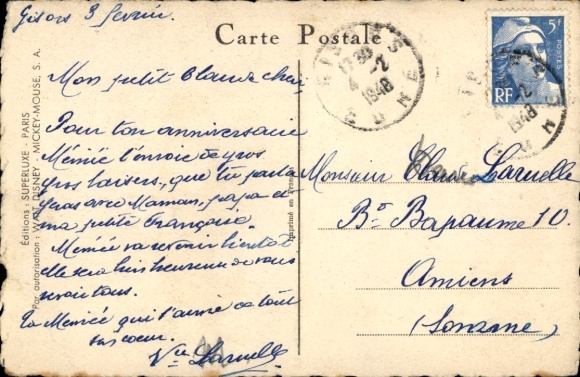 Gisors 3 février.
Carte Postale
Mon petit Claude cheri
Pour ton anniversaire
Mémée t'envoie de gros
gros baisers, que tu parta
geras avec Maman, papa et
ma petite Françoise.
Mémée va revenir bientôt
elle sera bien heureuse de vous
revoir tous.
Ta Mémée qui t'aime de tout
son cœur.
Vve Laruelle
Éditions : SUPERLUXE - PARIS
Par autorisation : WALT DISNEY - MICKEY-MOUSE, S. A.
Imprimé en France
17 30
4 - 2
1948
5F
POSTES
RF
Monsieur Claude Laruelle
Bd Bapaume 10.
Amiens
(Somme)